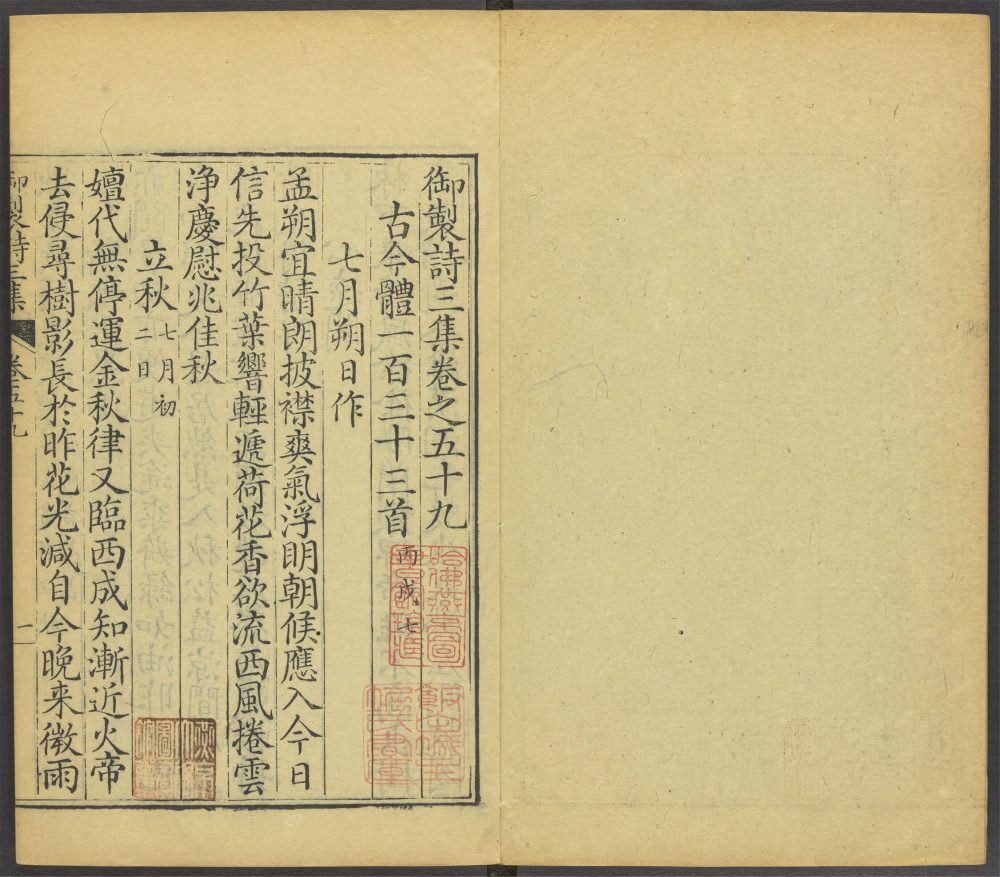 御製詩三集卷之五十九
古今體一百三十三首 丙戌七
七月朔日作
孟朔宜晴朗披襟爽氣浮明朝候應入今日
信先投竹葉響輕遞荷花香欲流西風捲雲
淨慶慰兆佳秋
立秋 七月初
二日
嬗代無停運金秋律又臨西成知漸近火帝
去侵尋樹影長於昨花光減自今晚来微雨
御製詩三集 卷五十九 一
哈佛燕京圖